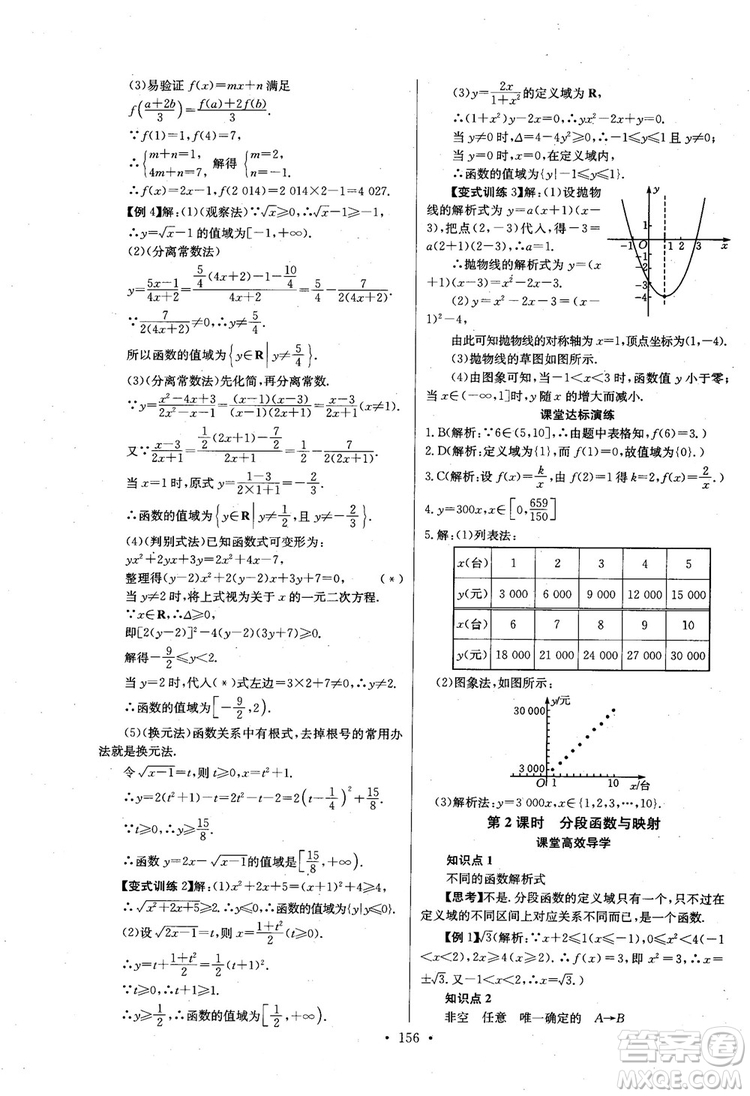 (3)易验证 f(x)=mx+n 满足
f((a+2b)/3)=(f(a)+2f(b))/3.
∵f(1)=1,f(4)=7,
∴{m+n=1, 4m+n=7, 解得{m=2, n=-1.
∴f(x)=2x-1,f(2 014)=2 014×2-1=4 027.
【例 4】解:(1)(观察法)∵√x≥0,∴√x-1≥-1,
∴y=√x-1 的值域为[-1,+∞).
(2)(分离常数法)
y=(5x-1)/(4x+2)=(5/4(4x+2)-1-10/4)/(4x+2)=5/4-7/(2(4x+2)).
∵7/(2(4x+2))≠0,∴y≠5/4.
所以函数的值域为{y∈R|y≠5/4}.
(3)(分离常数法)先化简,再分离常数.
∵y=(x²-4x+3)/(2x²-x-1)=((x-1)(x-3))/((x-1)(2x+1))=(x-3)/(2x+1)(x≠1),
又∵(x-3)/(2x+1)=(1/2(2x+1)-7/2)/(2x+1)=1/2-(7/2)/(2x+1)≠1/2,
当 x=1 时,原式 y=(1-3)/(2×1+1)=-2/3,
∴函数的值域为{y∈R|y≠1/2,且 y≠-2/3}.
(4)(判别式法)已知函数式可变形为:
yx²+2yx+3y=2x²+4x-7.
整理得(y-2)x²+2(y-2)x+3y+7=0, (*)
当 y≠2 时,将上式视为关于 x 的一元二次方程.
∵x∈R,∴Δ≥0,
即[2(y-2)]²-4(y-2)(3y+7)≥0.
解得-9/2≤y<2.
当 y=2 时,代人(*)式左边=3×2+7≠0.
∴函数的值域为[-9/2,2).
(5)(换元法)函数关系中有根式,去掉根号的常用办
法就是换元法.
令√(x-1)=t,则 t≥0,x=t²+1.
∴y=2(t²+1)-t=2t²-t+2=2(t-1/4)²+15/8.
∵t≥0,∴y≥15/8.
∴函数 y=2x-√(x-1)的值域是[15/8,+∞).
【变式训练 2】解:(1)x²+2x+5=(x+1)²+4≥4,
∴√(x²+2x+5)≥2,∴函数的值域为{y|y≥2}.
(2)设√(2x-1)=t,则 t≥0,x=(1+t²)/2.
∴y=(1+t²)/2+t=1/2(t+1)².
∵t≥0,∴y≥1/2,∴函数的值域为[1/2,+∞).
(3)y=2x/(1+x²)的定义域为 R,
∴(1+x²)y-2x=0,∴yx²-2x+y=0.
当 y≠0 时,Δ=4-4y²≥0,∴-1≤y≤1.
当 y=0 时,x=0 在定义域内,
∴函数的值域为{y|-1≤y≤1}.
【变式训练 3】解:(1)设抛物
线的解析式为 y=a(x+1)(x-3).
把点(1,-2)代人,得-2=
a(1+1)(1-3),∴a=1.
∴抛物线的解析式为 y=
(x+1)(x-3)=x²-2x-3.
(2) y=x²-2x-3=(x-
1)²-4,
y
1
-1 O 1 2 3 x
-1
-2
-3
-4
由此可知抛物线的对称轴为 x=1,顶点坐标为(1,-4).
(3)抛物线的草图如图所示.
(4)由图象可知,当-1<x<3 时,函数值 y 小于零;
当 x∈(-∞,1]时,y 随 x 的增大而减小.
课堂达标演练
1. B(解析:∵6∈(5,10],由题中表格知,f(6)=3.)
2. D(解析:定义域为{1},而 f(1)=0,故值域为{0}.)
3. C(解析:设 f(x)=k/x,由 f(1)=2 得 k=2,f(x)=2/x.)
4. y=300x,x∈[0,659/150]
5. 解:(1)列表法:
x(台) 1 2 3 4 5
y(元) 3 000 6 000 9 000 12 000 15 000
x(台) 6 7 8 9 10
y(元) 18 000 21 000 24 000 27 000 30 000
(2)图象法,如图所示:
y/元
30 000
3 000
O 1 10 x/台
(3)解析法:y=3 000x,x∈{1,2,3,…,10}.
第 2 课时 分段函数与映射
课堂高效导学
知识点 1
不同的函数解析式
【思考】不是. 分段函数的定义域只有一个,只不过在
定义域的不同区间上对应关系不同,所以是一个函数.
【例 1】√3(解析:由 0≤x²<4(-1
<x<2),∴f(x)=3,即 x²=3,∴x=
±√3.又∵-1<x<2,∴x=√3.)
知识点 2
非空 任意 唯一确定的 A→B
• 156 •
答案圈
MXQE.COM